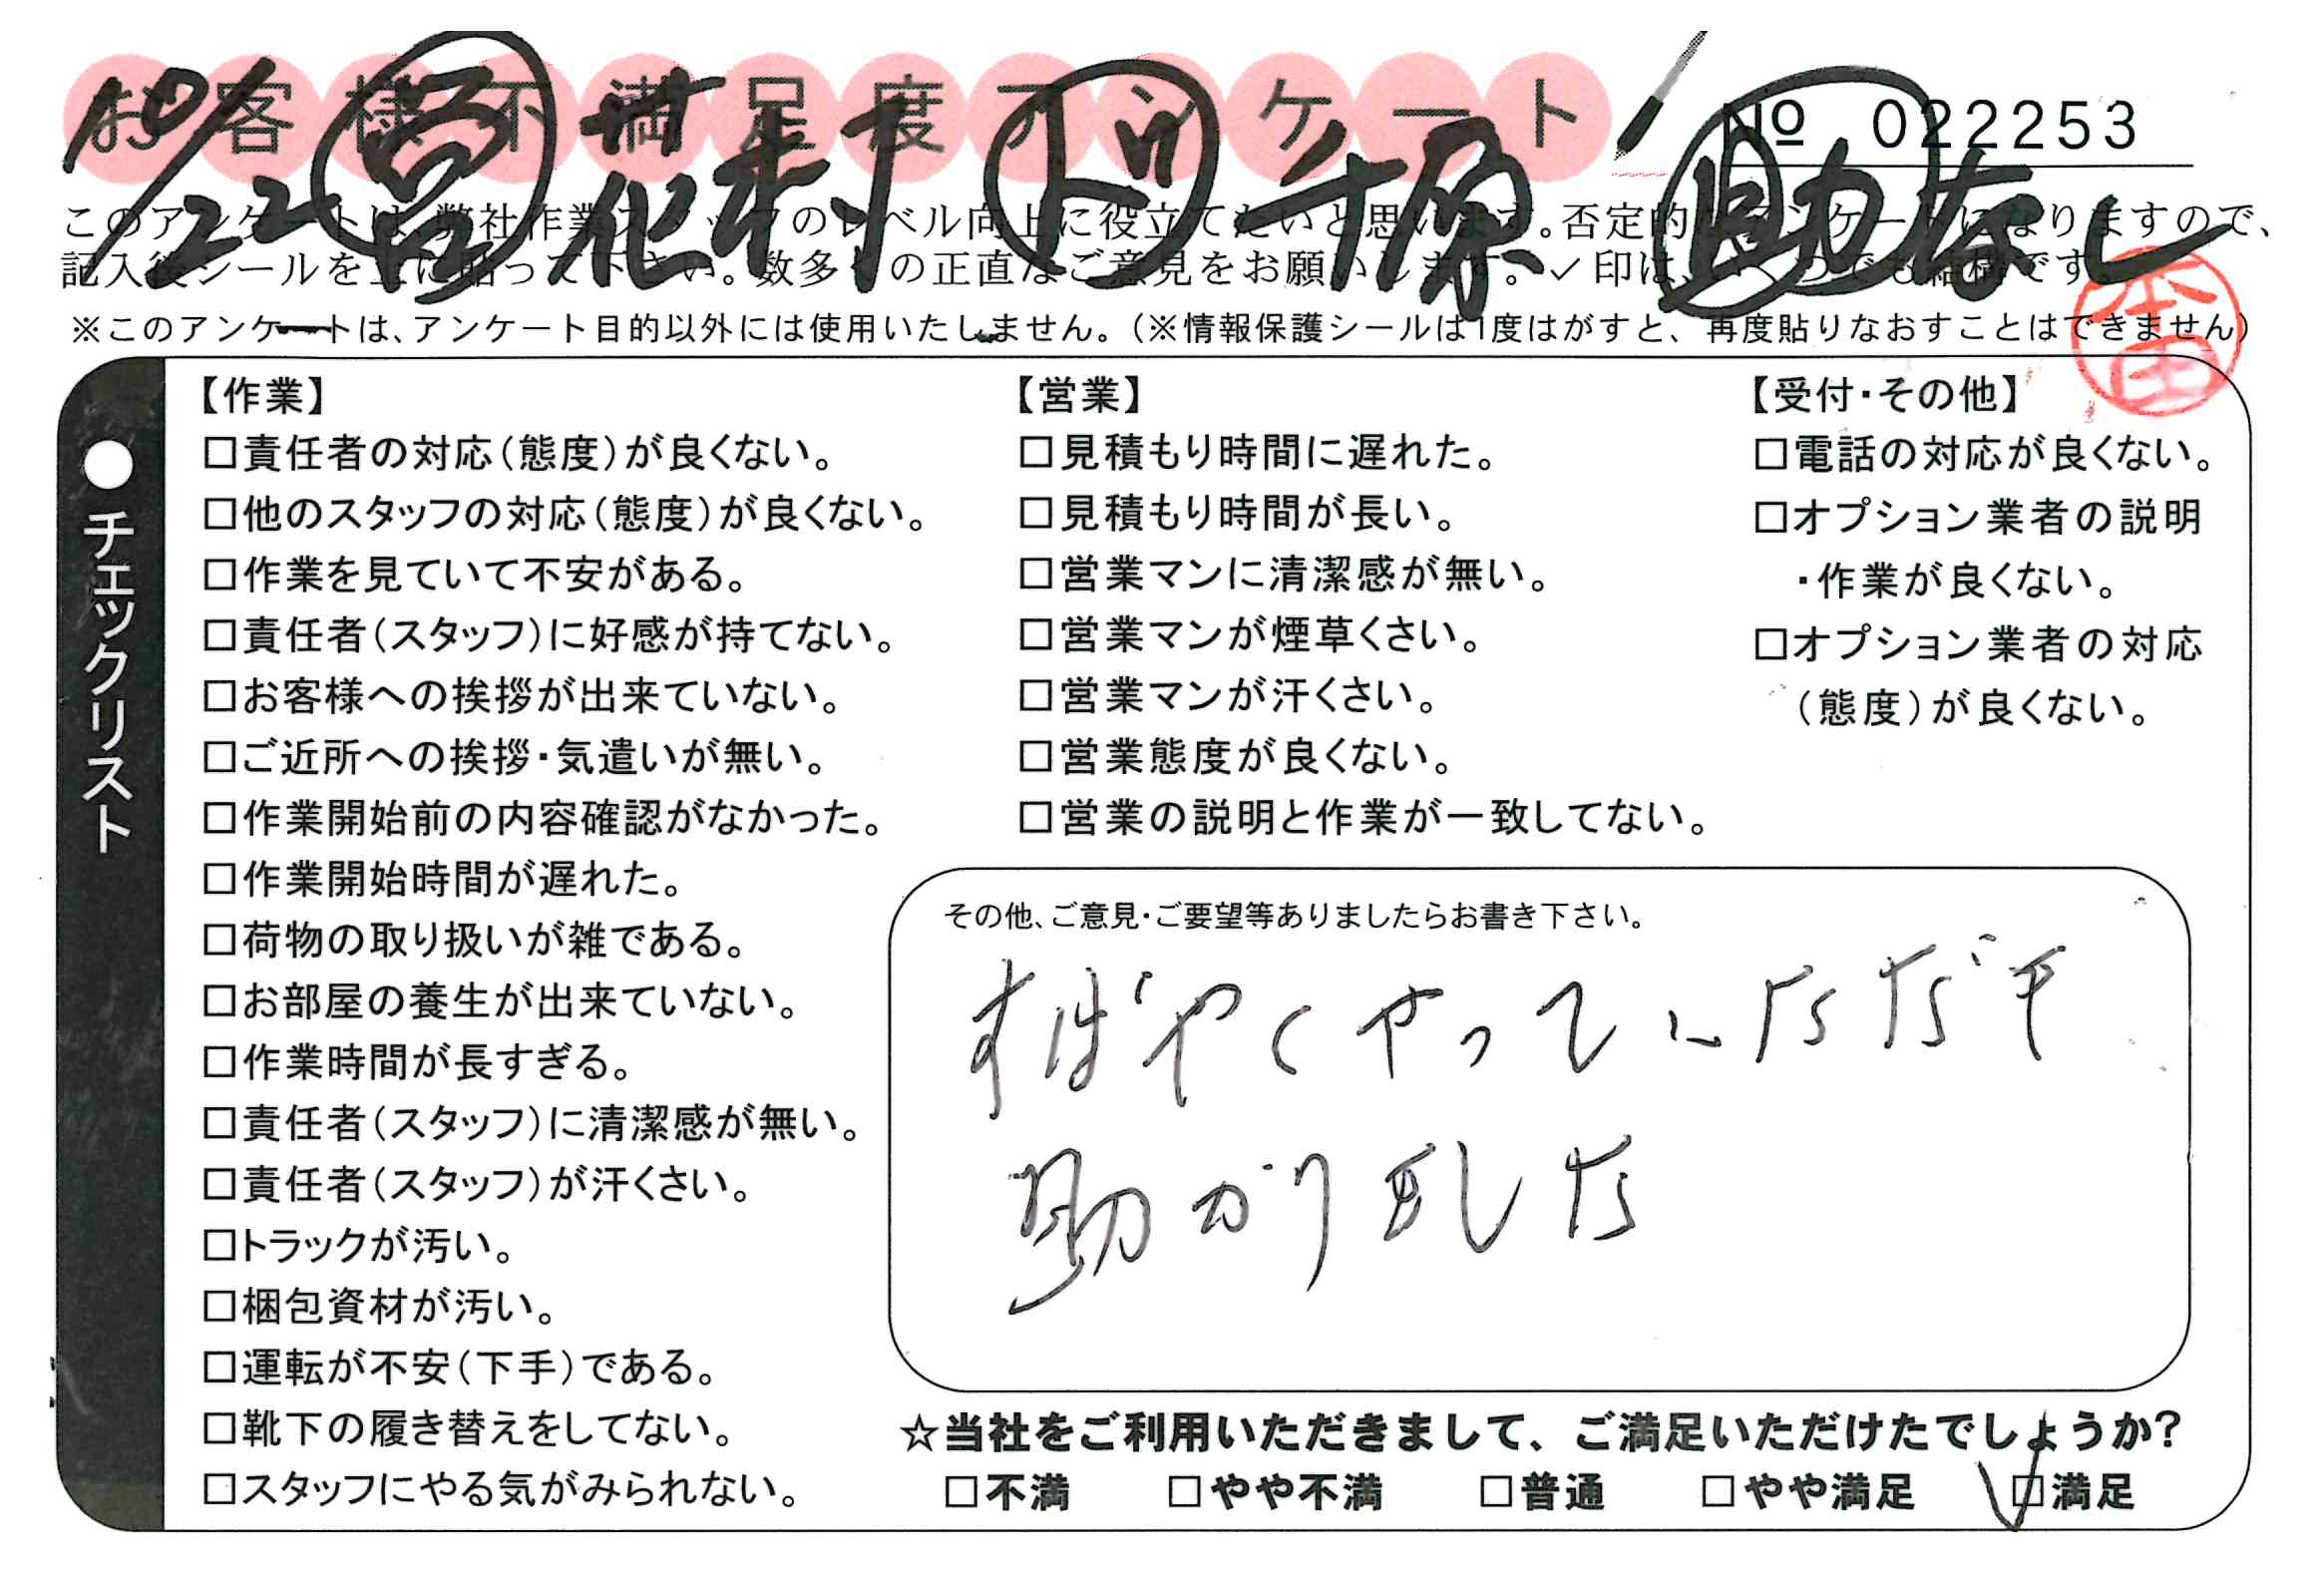 お客様不満足度アンケート
№ 022253
10/22 営 花村 ド 原 助 なし
このアンケートは、弊社作業スタッフのレベル向上に役立てたいと思います。否定的なアンケートになりますので、
記入後シールを上に貼って下さい。数多くの正直なご意見をお願いします。✓印は、いくつでも結構です。
※このアンケートは、アンケート目的以外には使用いたしません。(※情報保護シールは1度はがすと、再度貼りなおすことはできません)
本田
●チェックリスト
【作業】
□責任者の対応(態度)が良くない。
□他のスタッフの対応(態度)が良くない。
□作業を見ていて不安がある。
□責任者(スタッフ)に好感が持てない。
□お客様への挨拶が出来ていない。
□ご近所への挨拶・気遣いが無い。
□作業開始前の内容確認がなかった。
□作業開始時間が遅れた。
□荷物の取り扱いが雑である。
□お部屋の養生が出来ていない。
□作業時間が長すぎる。
□責任者(スタッフ)に清潔感が無い。
□責任者(スタッフ)が汗くさい。
□トラックが汚い。
□梱包資材が汚い。
□運転が不安(下手)である。
□靴下の履き替えをしてない。
□スタッフにやる気がみられない。
【営業】
□見積もり時間に遅れた。
□見積もり時間が長い。
□営業マンに清潔感が無い。
□営業マンが煙草くさい。
□営業マンが汗くさい。
□営業態度が良くない。
□営業の説明と作業が一致してない。
【受付・その他】
□電話の対応が良くない。
□オプション業者の説明
・作業が良くない。
□オプション業者の対応
(態度)が良くない。
その他、ご意見・ご要望等ありましたらお書き下さい。
すばやくやっていただき
助かりました
☆当社をご利用いただきまして、ご満足いただけたでしょうか?
□不満 □やや不満 □普通 □やや満足 ☑満足